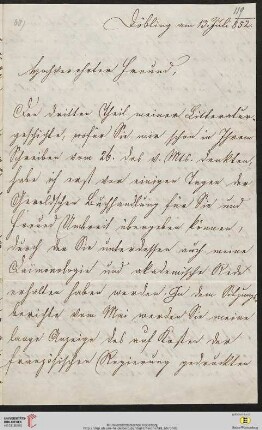 119
Döbling am 13 Juli 852.
Hochverehrter Freund,
Den dritten Theil meiner Litteratur-
geschichte, wofür Sie mir schon in Ihrem
Schreiben vom 26. des v. Mts. danken,
habe ich erst vor einigen Tagen der
Gerold'schen Buchhandlung für Sie und
Freund Umbreit übergeben können,
durch den Sie unterdessen auch meine
und akademische Rede
erhalten haben werden. In dem Sitzungs-
berichte vom Mai werden Sie meine
lange Anzeige des auf Kosten der
französischen Regierung gedruckten